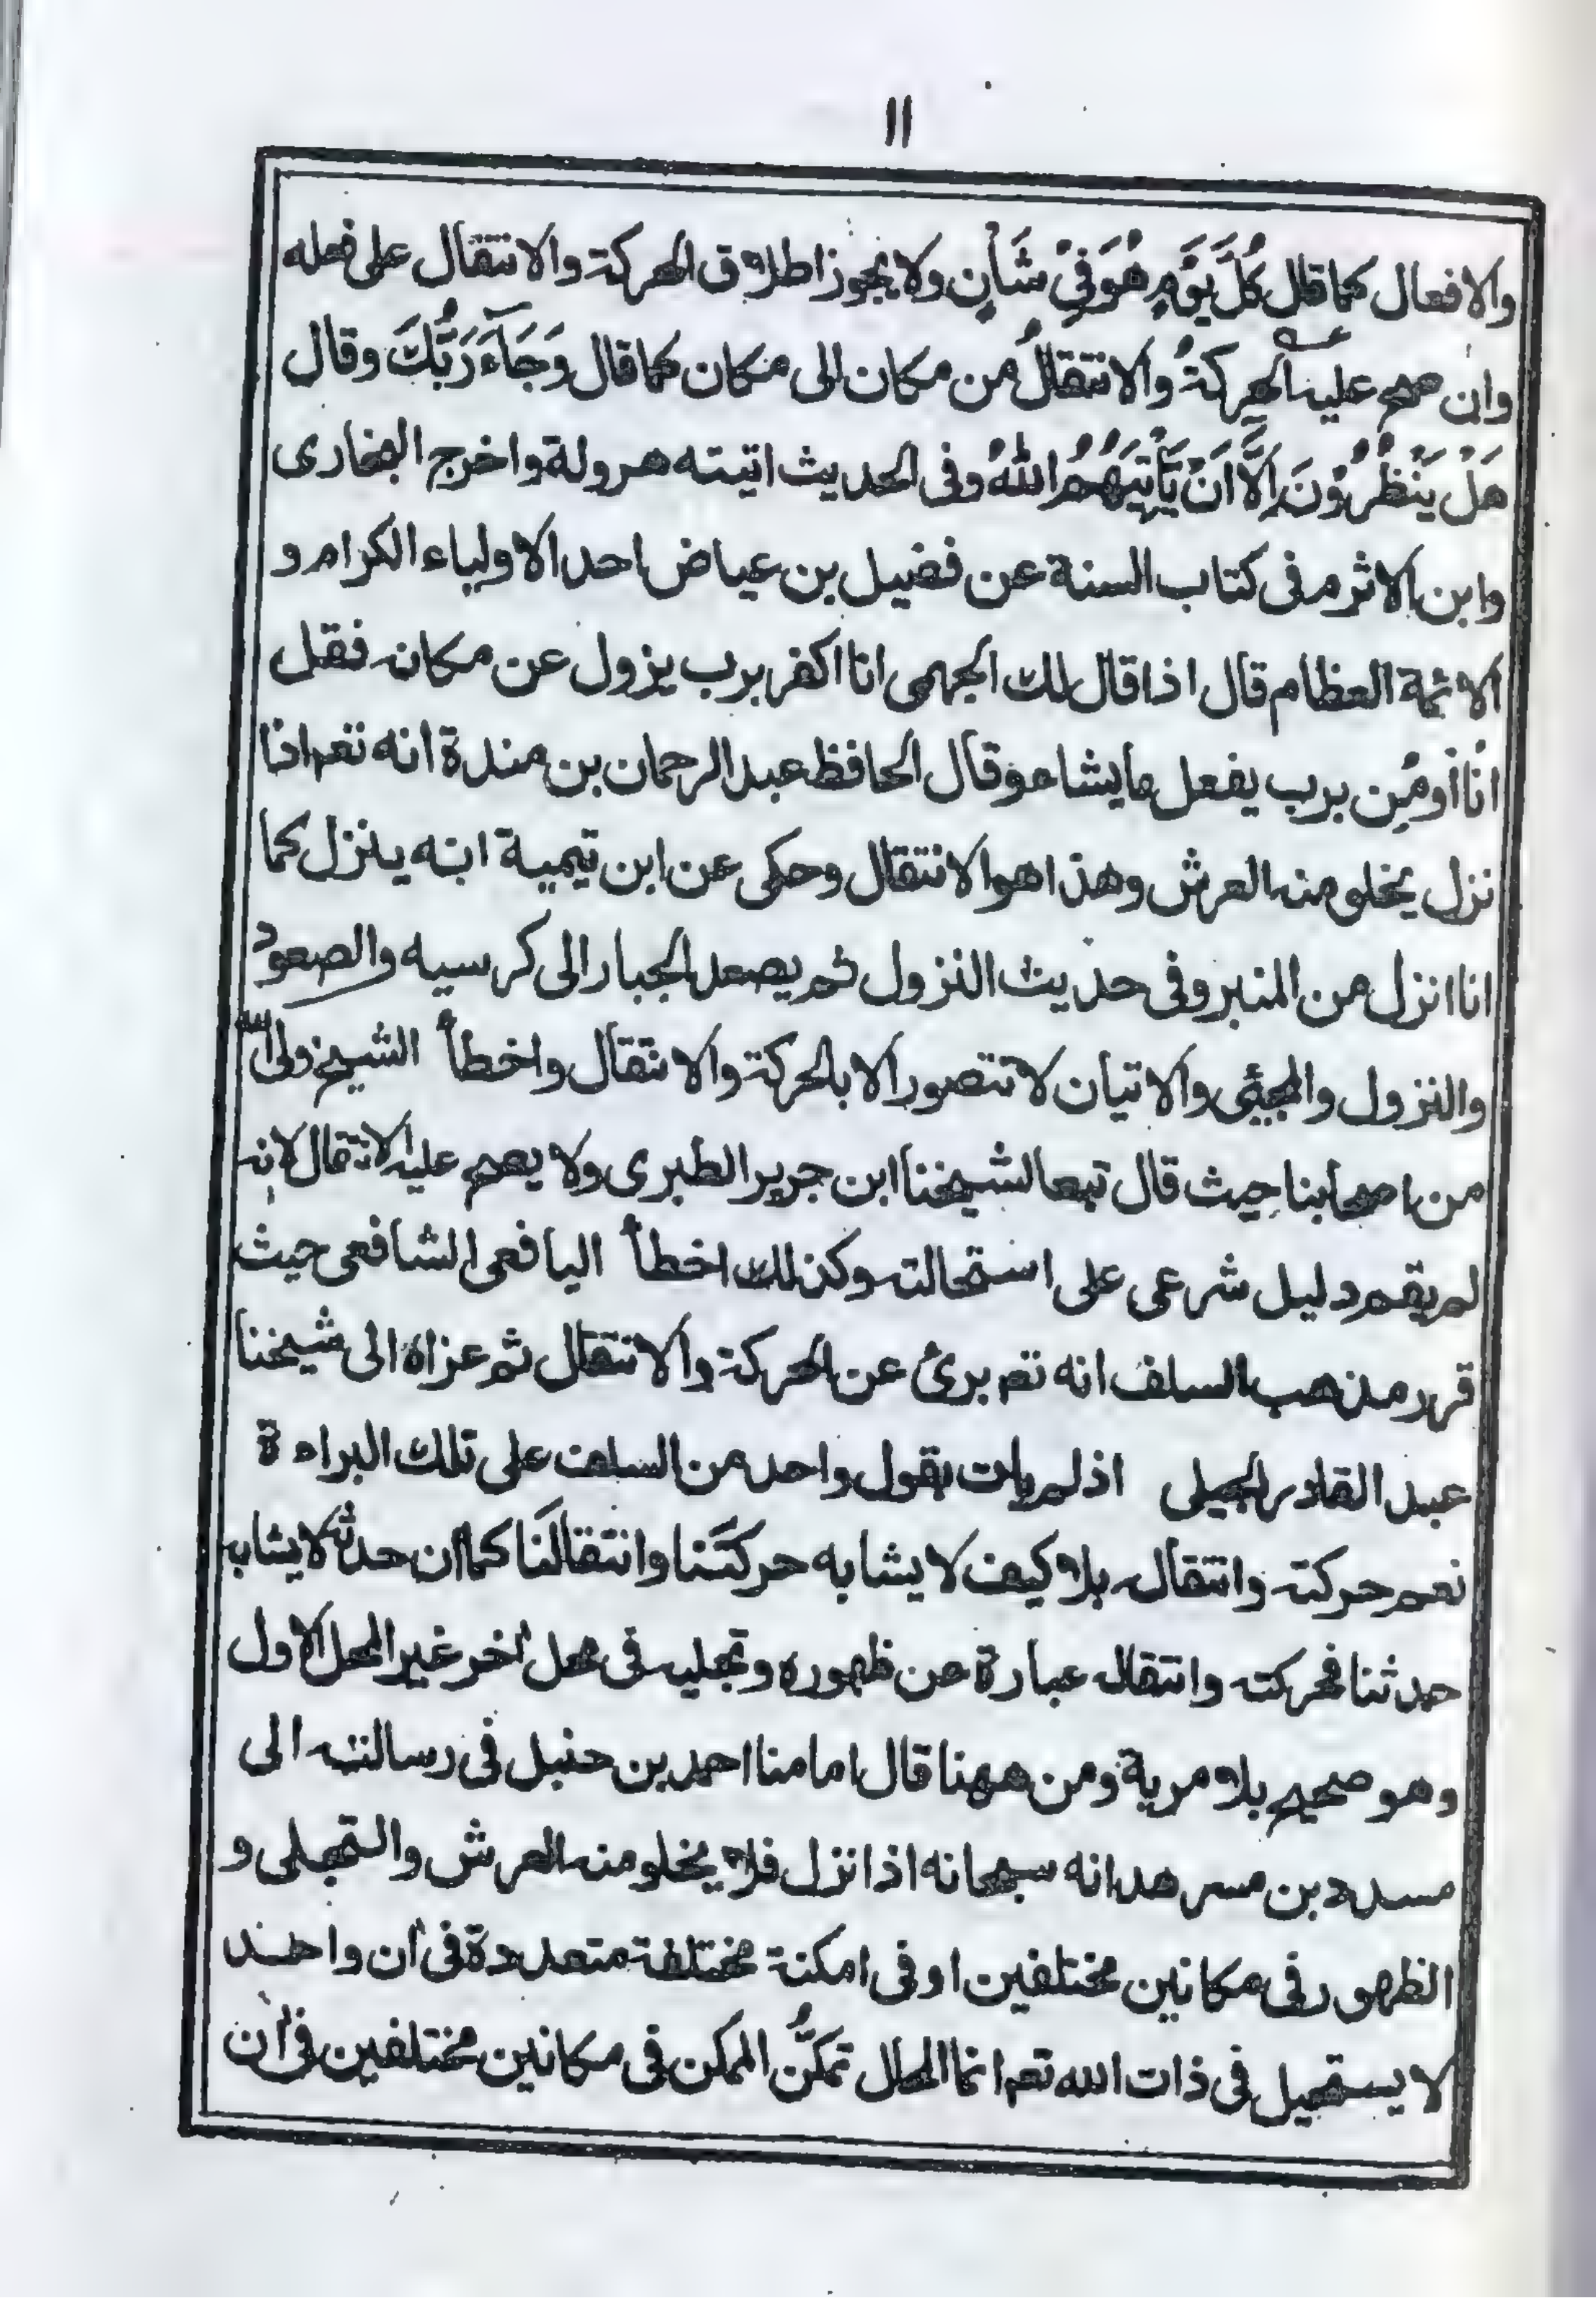 ۱۱
والافعال كما قال كُلَّ يَوْمٍ هُوَ فِيْ شَأْنٍ ولا يجوز اطلاق الحركة والانتقال على فعله
وان صح عليه الحركةُ والانتقالُ من مكان الى مكان كما قال وَجَآءَ رَبُّكَ وقال
هَلْ يَنْظُرُوْنَ اِلَّا اَنْ يَّأْتِيَهُمُ اللهُ وفى الحديث اتيته هرولة واخرج البخارى
وابن الاثرم فى كتاب السنة عن فضيل بن عياض احد الاولياء الكرام و
الائمة العظام قال اذا قال لك الجهمى انا اكفر برب يزول عن مكانه فقل
انا اُومِن برب يفعل ما يشاء وقال الحافظ عبد الرحمان بن مندة انه تعم اذا
نزل يخلو منه العرش وهذا هو الانتقال وحكى عن ابن تيمية انه ينزل كما
انا انزل من المنبر وفى حديث النزول ثم يصعد الجبار الى كرسيه والصعود
والنزول والمجيئى والاتيان لا تتصور الا بالحركة والانتقال واخطأ الشيخ ولى الله
من اصحابنا حيث قال تبعا لشيخنا ابن جرير الطبرى ولا يصح عليه الانتقال لانه
لم يقم دليل شرعى على استحالته وكذلك اخطأ اليافعى الشافعى حيث
قرر مذهب السلف انه تعم برئ عن الحركة والانتقال ثم عزاه الى شيخنا
عبد القادر الجيلى اذ لم يات بقول واحد من السلف على تلك البراءة
نعم حركته وانتقاله بلا كيف لا يشابه حركتَنا وانتقالَنا كما ان حدثه لا يشابه
حدثنا فحركته وانتقاله عبارة عن ظهوره وتجليه فى محل اٰخر غير المحل الاول
وهو صحيح بلا مرية ومن ههنا قال امامنا احمد بن حنبل فى رسالته الى
مسدد بن مسرهد انه سبحانه اذا نزل فلا يخلو منه العرش والتجلى و
الظهور فى مكانين مختلفين او فى امكنة مختلفة متعددة فى اٰن واحد
لا يستحيل فى ذات الله تعم انما المحال تمكّنُ الممكن فى مكانين مختلفين فى اٰن